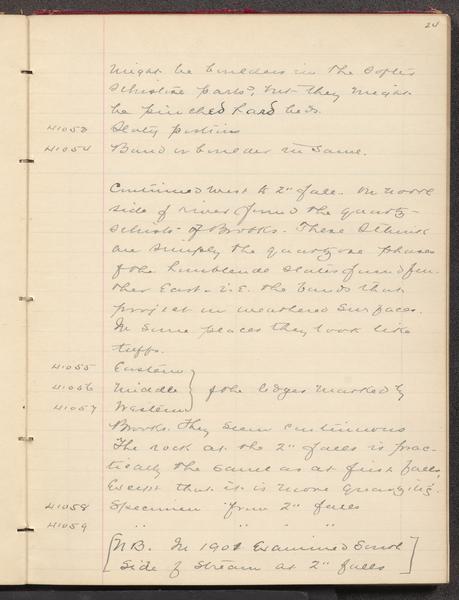 24
might be boulders in the softer
schistose parts, but they might
be pinched hard beds.
41053 Slaty portions
41054 Band or boulder in same.
Continued west to 2" falls. On north
side of river found the quartz-
schists of Brooks. These schists
are simply the quartzose phases
of the hornblende slates found fur-
ther East - i.e. the bands that
project on weathered surfaces.
In some places they look like
tuffs.
41055 Eastern
41056 Middle } of the ledges marked by
41057 Western
Brooks. They seem continuous
The rock at the 2" falls is prac-
tically the same as at first falls,
Except that it is more quartzitic.
41058 Specimen from 2" falls
41059 " " " "
[N.B. In 1901 Examined South
side of stream at 2" falls]